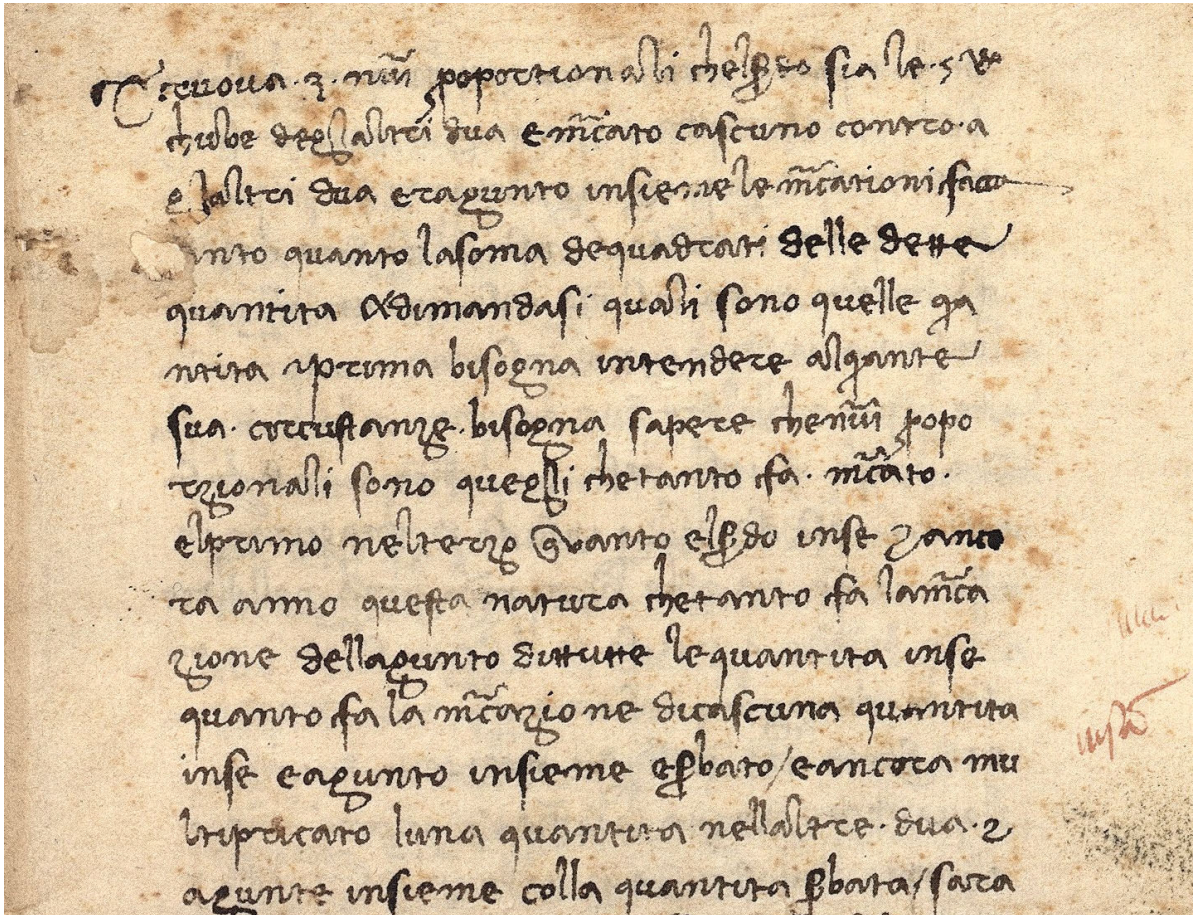 Truova .3. nũi proportionali chelsc̃do sia le .5 R
chube deglaltri dua e m̃cato cascuno contro a
glaltri dua e ragunto insieme le m̃cationi facc
anto quanto lasoma dequadrati delle dette
quantita Adimandasi quali sono quelle qua
ntita prima bisogna intendere alquante
sua circustanze bisogna sapere chenũi propo
rzionali sono quegli chetanto fa. m̃cato.
elprimo nelterzo quanto elsc̃do inse anco
ra anno questa natura chetanto fa lam̃ca
zione dellagunto dittutte lequantita inse
quanto fa la m̃cazione dicascuna quantita
inse e agunto insieme e sbato / e ancora mu
ltipricato luna quantita nellaltre .dua. 2
agunte insieme colla quantita sbata / sara